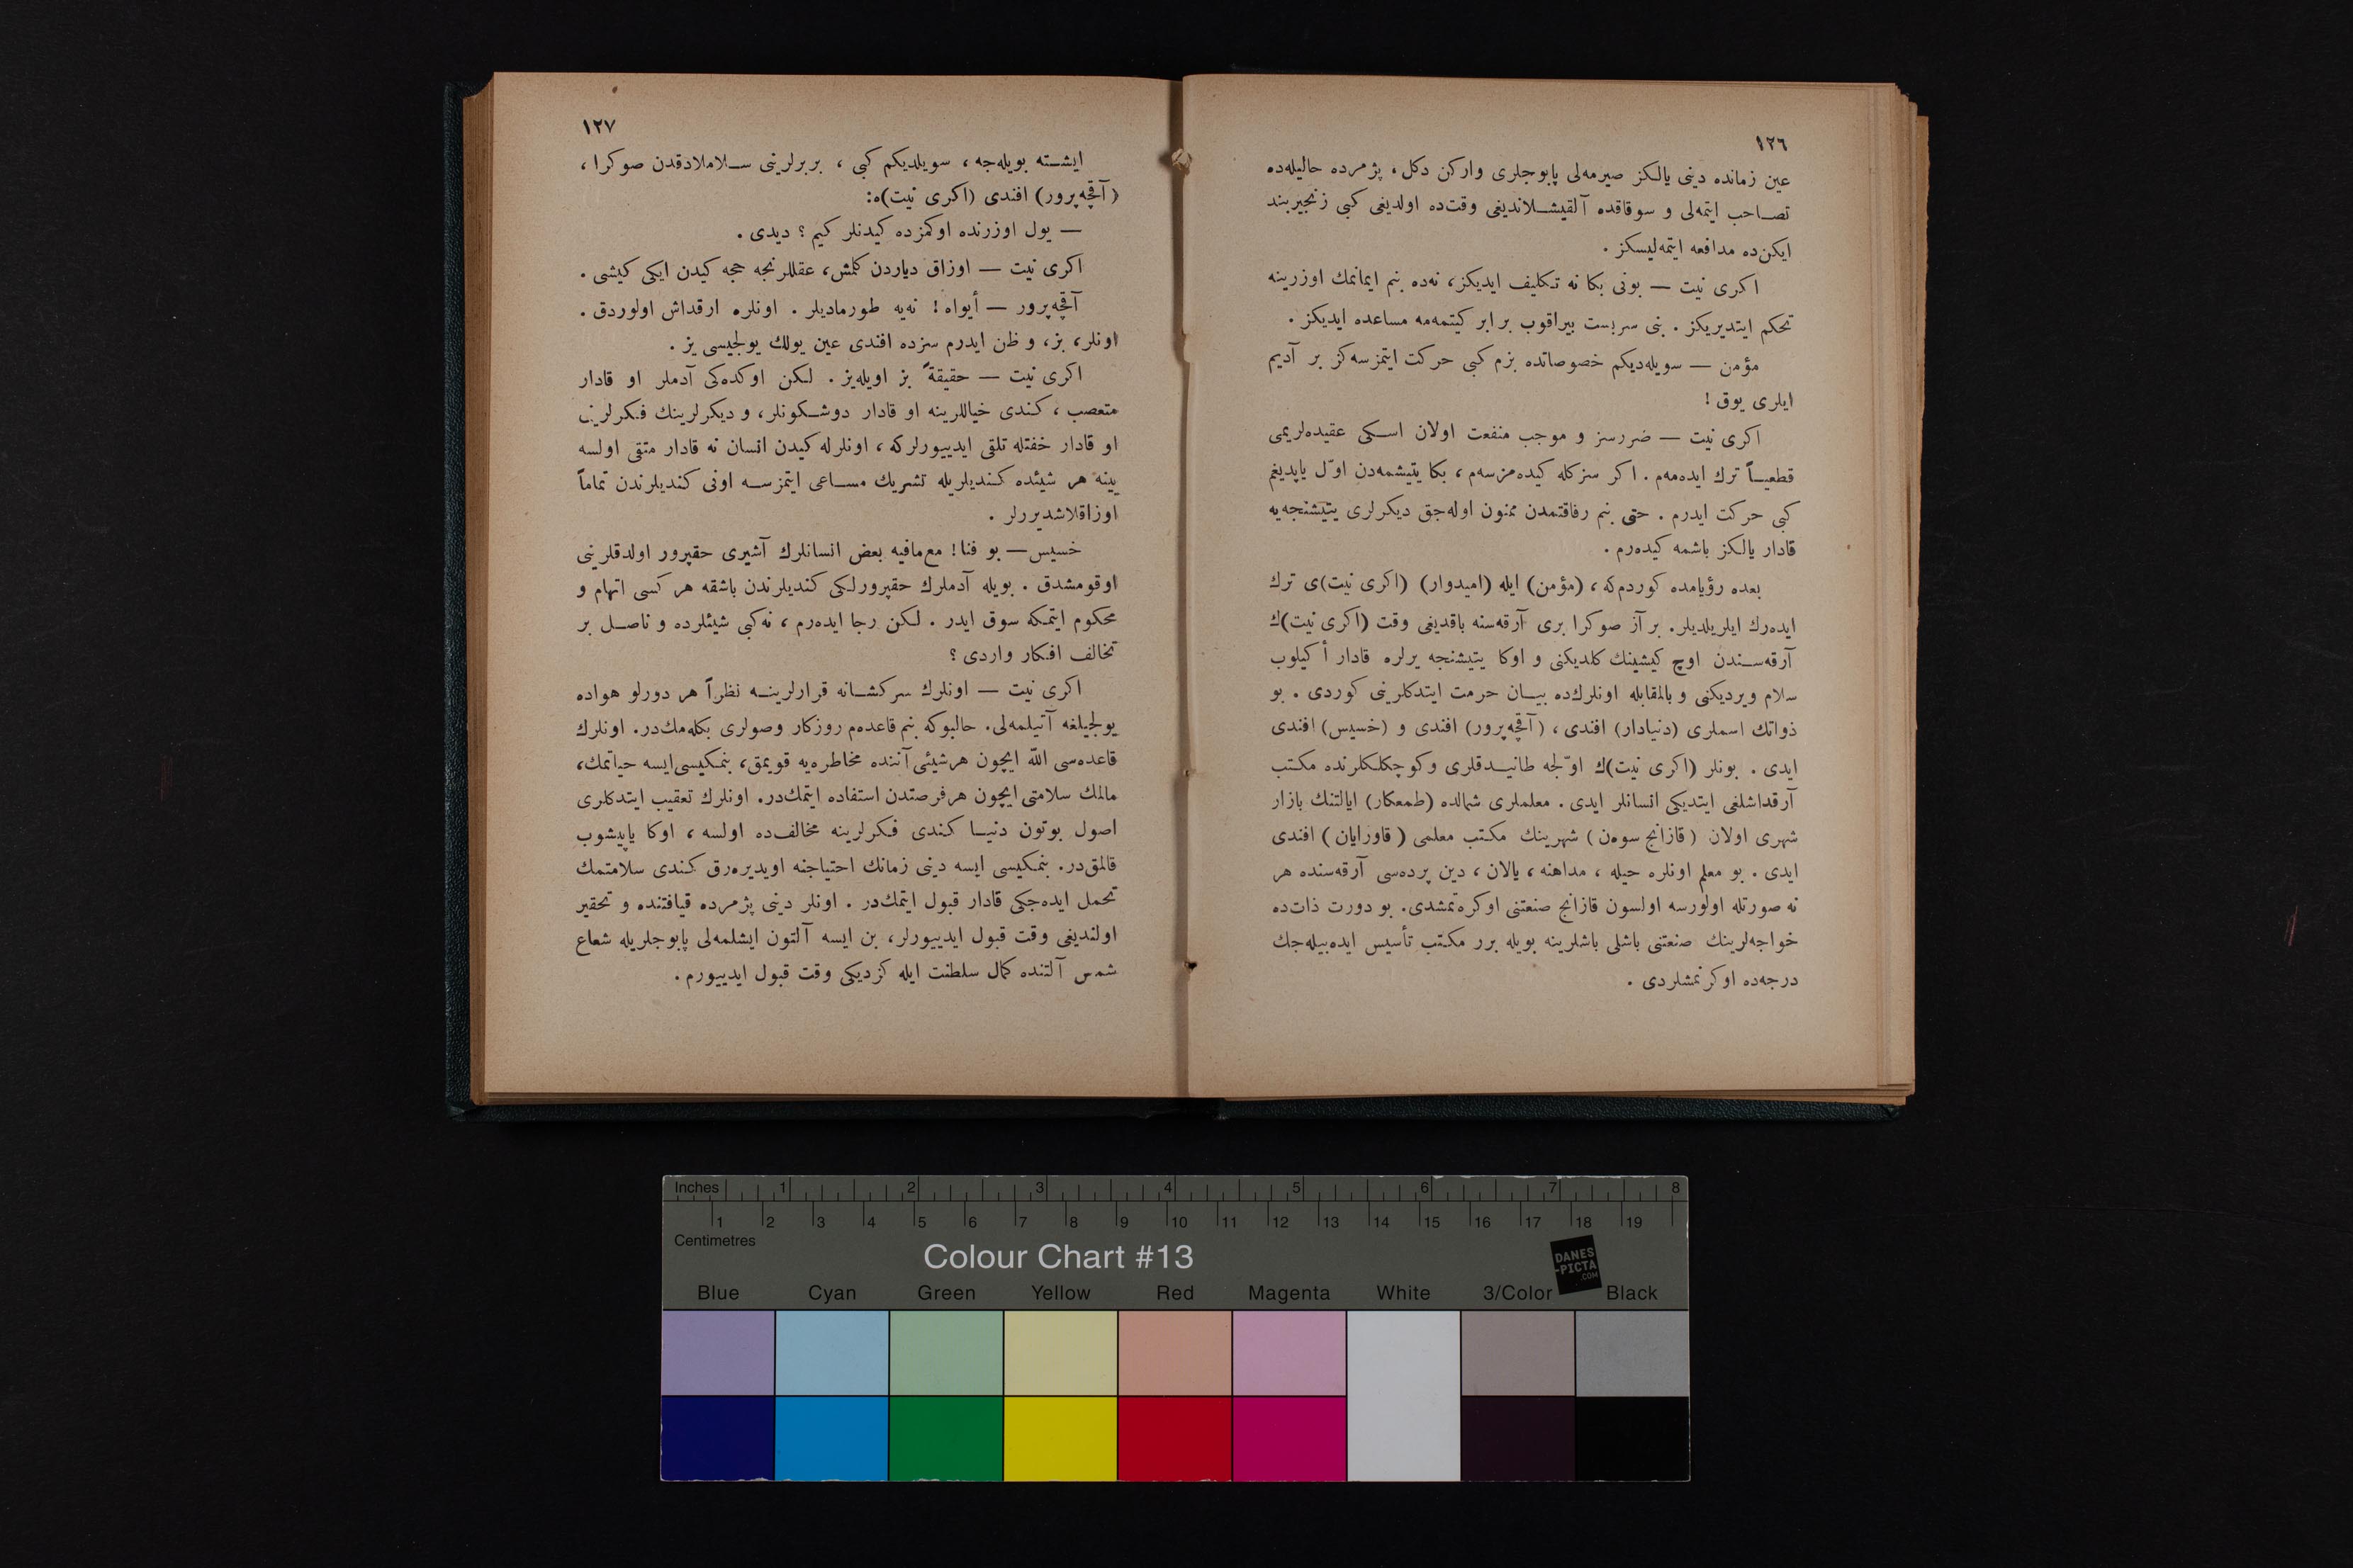 ١٢٦
عين زمانده دينى يالكز صيرمه‌لى پابوجلرى واركن دكل، پژمرده حاليله‌ده
تصاحب ايتمه‌لى و سوقاقده آلقيشلانديغى وقت‌ده اولديغى كبى زنجيربند
ايكن‌ده مدافعه ايتمه‌ليسكز .
اكرى نيت — بونى بكا نه تكليف ايديكز، نه‌ده بنم ايمانمك اوزرينه
تحكم ايتديريكز . بنى سربست بيراقوب برابر كيتمه‌مه مساعده ايديكز .
مؤمن — سويله‌ديكم خصوصاتده بزم كبى حركت ايتمزسه‌كز بر آديم
ايلرى يوق !
اكرى نيت — ضررسز و موجب منفعت اولان اسكى عقيده‌لريمى
قطعياً ترك ايده‌مه‌م . اكر سزكله كيده‌مزسه‌م ، بكا يتيشمه‌دن اوّل ياپديغم
كبى حركت ايدرم . حتى بنم رفاقتمدن ممنون اوله‌جق ديكرلرى يتيشنجه‌يه
قادار يالكز باشمه كيده‌رم .
بعده رؤيامده كوردم‌كه ، (مؤمن) ايله (اميدوار) (اكرى نيت)ى ترك
ايده‌رك ايلريلديلر. بر آز صوكرا برى آرقه‌سنه باقديغى وقت (اكرى نيت)ك
آرقه‌سندن اوچ كيشينك كلديكنى و اوكا يتيشنجه يرلره قادار أكيلوب
سلام ويرديكنى و بالمقابله اونلرك‌ده بيان حرمت ايتدكلرينى كوردى . بو
ذواتك اسملرى (دنيادار) افندى ، (آقچه‌پرور) افندى و (خسيس) افندى
ايدى . بونلر (اكرى نيت)ك اوّلجه طانيدقلرى وكوچكلكلرنده مكتب
آرقداشلغى ايتديكى انسانلر ايدى . معلملرى شمالده (طمعكار) ايالتنك بازار
شهرى اولان (قازانج سوه‌ن) شهرينك مكتب معلمى (قاورايان) افندى
ايدى . بو معلم اونلره حيله ، مداهنه ، يالان ، دين پرده‌سى آرقه‌سنده هر
نه صورتله اولورسه اولسون قازانج صنعتنى اوكره‌تمشدى. بو دورت ذات‌ده
خواجه‌لرينك صنعتنى باشلى باشلرينه بويله برر مكتب تأسيس ايده‌بيله‌جك
درجه‌ده اوكرنمشلردى .
١٢٧
ايشته بويله‌جه ، سويلديكم كبى ، بربرلرينى سلاملادقدن صوكرا ،
(آقچه‌پرور) افندى (اكرى نيت)ه:
— يول اوزرنده اوكمزده كيدنلر كيم ؟ ديدى .
اكرى نيت — اوزاق دياردن كلمش، عقللرنجه حجه كيدن ايكى كيشى .
آقچه‌پرور — أيواه ! نه‌يه طورماديلر . اونلره ارقداش اولوردق .
اونلر، بز، و ظن ايدرم سزده افندى عين يولك يولجيسى يز .
اكرى نيت — حقيقةً بز اويله‌يز . لكن اوكده‌كى آدملر او قادار
متعصب ، كندى خياللرينه او قادار دوشكونلر، و ديكرلرينك فكرلرين
او قادار خفتله تلقى ايدييورلركه ، اونلرله كيدن انسان نه قادار متقى اولسه
يينه هر شيئده كنديلريله تشريك مساعى ايتمزسه اونى كنديلرندن تماماً
اوزاقلاشديررلر .
خسيس — بو فنا! مع‌مافيه بعض انسانلرك آشيرى حقپرور اولدقلرينى
اوقومشدق . بويله آدملرك حقپرورلكى كنديلرندن باشقه هر كسى اتهام و
محكوم ايتمكه سوق ايدر . لكن رجا ايده‌رم ، نه‌كبى شيئلرده و ناصل بر
تخالف افكار واردى ؟
اكرى نيت — اونلرك سركشانه قرارلرينه نظراً هر دورلو هواده
يولجيلغه آتيلمه‌لى. حالبوكه بنم قاعده‌م روزكار وصولرى بكله‌مك‌در. اونلرك
قاعده‌سى اللّه ايچون هرشيئى آننده مخاطره‌يه قويمق، بنمكيسى‌ايسه حياتمك،
مالمك سلامتى ايچون هرفرصتدن استفاده ايتمك‌در. اونلرك تعقيب ايتدكلرى
اصول بوتون دنيا كندى فكرلرينه مخالف‌ده اولسه ، اوكا ياپيشوب
قالمق‌در. بنمكيسى ايسه دينى زمانك احتياجنه اويديره‌رق كندى سلامتمك
تحمل ايده‌جكى قادار قبول ايتمك‌در . اونلر دينى پژمرده قيافتنده و تحقير
اولنديغى وقت قبول ايدييورلر، بن ايسه آلتون ايشلمه‌لى پابوجلريله شعاع
شمس آلتنده كمال سلطنت ايله كزديكى وقت قبول ايدييورم .
Inches 1 2 3 4 5 6 7 8
1 2 3 4 5 6 7 8 9 10 11 12 13 14 15 16 17 18 19
Centimetres
Colour Chart #13
DANES
-PICTA
.COM
Blue Cyan Green Yellow Red Magenta White 3/Color Black